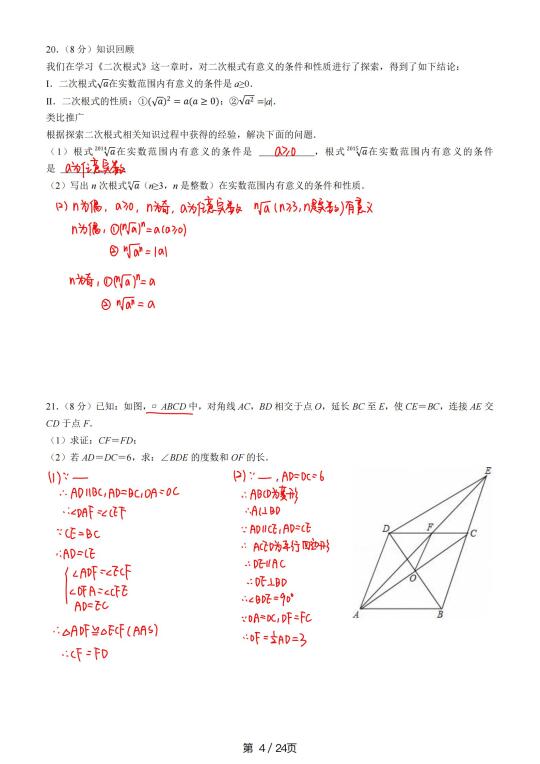 20.（8 分）知识回顾
我们在学习《二次根式》这一章时，对二次根式有意义的条件和性质进行了探索，得到了如下结论：
I．二次根式√a在实数范围内有意义的条件是 a≥0．
II．二次根式的性质：①(√a)² = a(a ≥ 0)；②√a² =|a|．
类比推广
根据探索二次根式相关知识过程中获得的经验，解决下面的问题．
（1）根式 ²⁰¹⁴√a在实数范围内有意义的条件是 a≥0 ，根式 ²⁰¹⁵√a在实数范围内有意义的条件
是 a为任意实数
（2）写出 n 次根式ⁿ√a（n≥3，n 是整数）在实数范围内有意义的条件和性质．
(2) n为偶，a≥0，n为奇，a为任意实数 ⁿ√a (n≥3, n是整数) 有意义
n为偶，①(ⁿ√a)ⁿ=a(a≥0)
② ⁿ√aⁿ=|a|
n为奇，①(ⁿ√a)ⁿ=a
② ⁿ√aⁿ = a
21.（8 分）已知：如图，▱ ABCD 中，对角线 AC，BD 相交于点 O，延长 BC 至 E，使 CE＝BC，连接 AE 交
CD 于点 F．
（1）求证：CF＝FD；
（2）若 AD＝DC＝6，求：∠BDE 的度数和 OF 的长．
(1)∵ —
∴ AD∥BC, AD=BC, OA=OC
∴∠DAF=∠CEF
∵CE=BC
∴AD=CE
∠ADF=∠ECF
∠DFA=∠CFE
AD=EC
∴△ADF≌△ECF(AAS)
∴CF=FD
(2)∵ —, AD=DC=6
∴ABCD为菱形
∴AC⊥BD
∵AD∥CE, AD=CE
∴ ACED为平行四边形
∴DE∥AC
∴DE⊥BD
∴∠BDE=90°
∵OA=OC, DF=FC
∴OF=½AD=3
E
D
F
C
O
A
B
第 4／24页